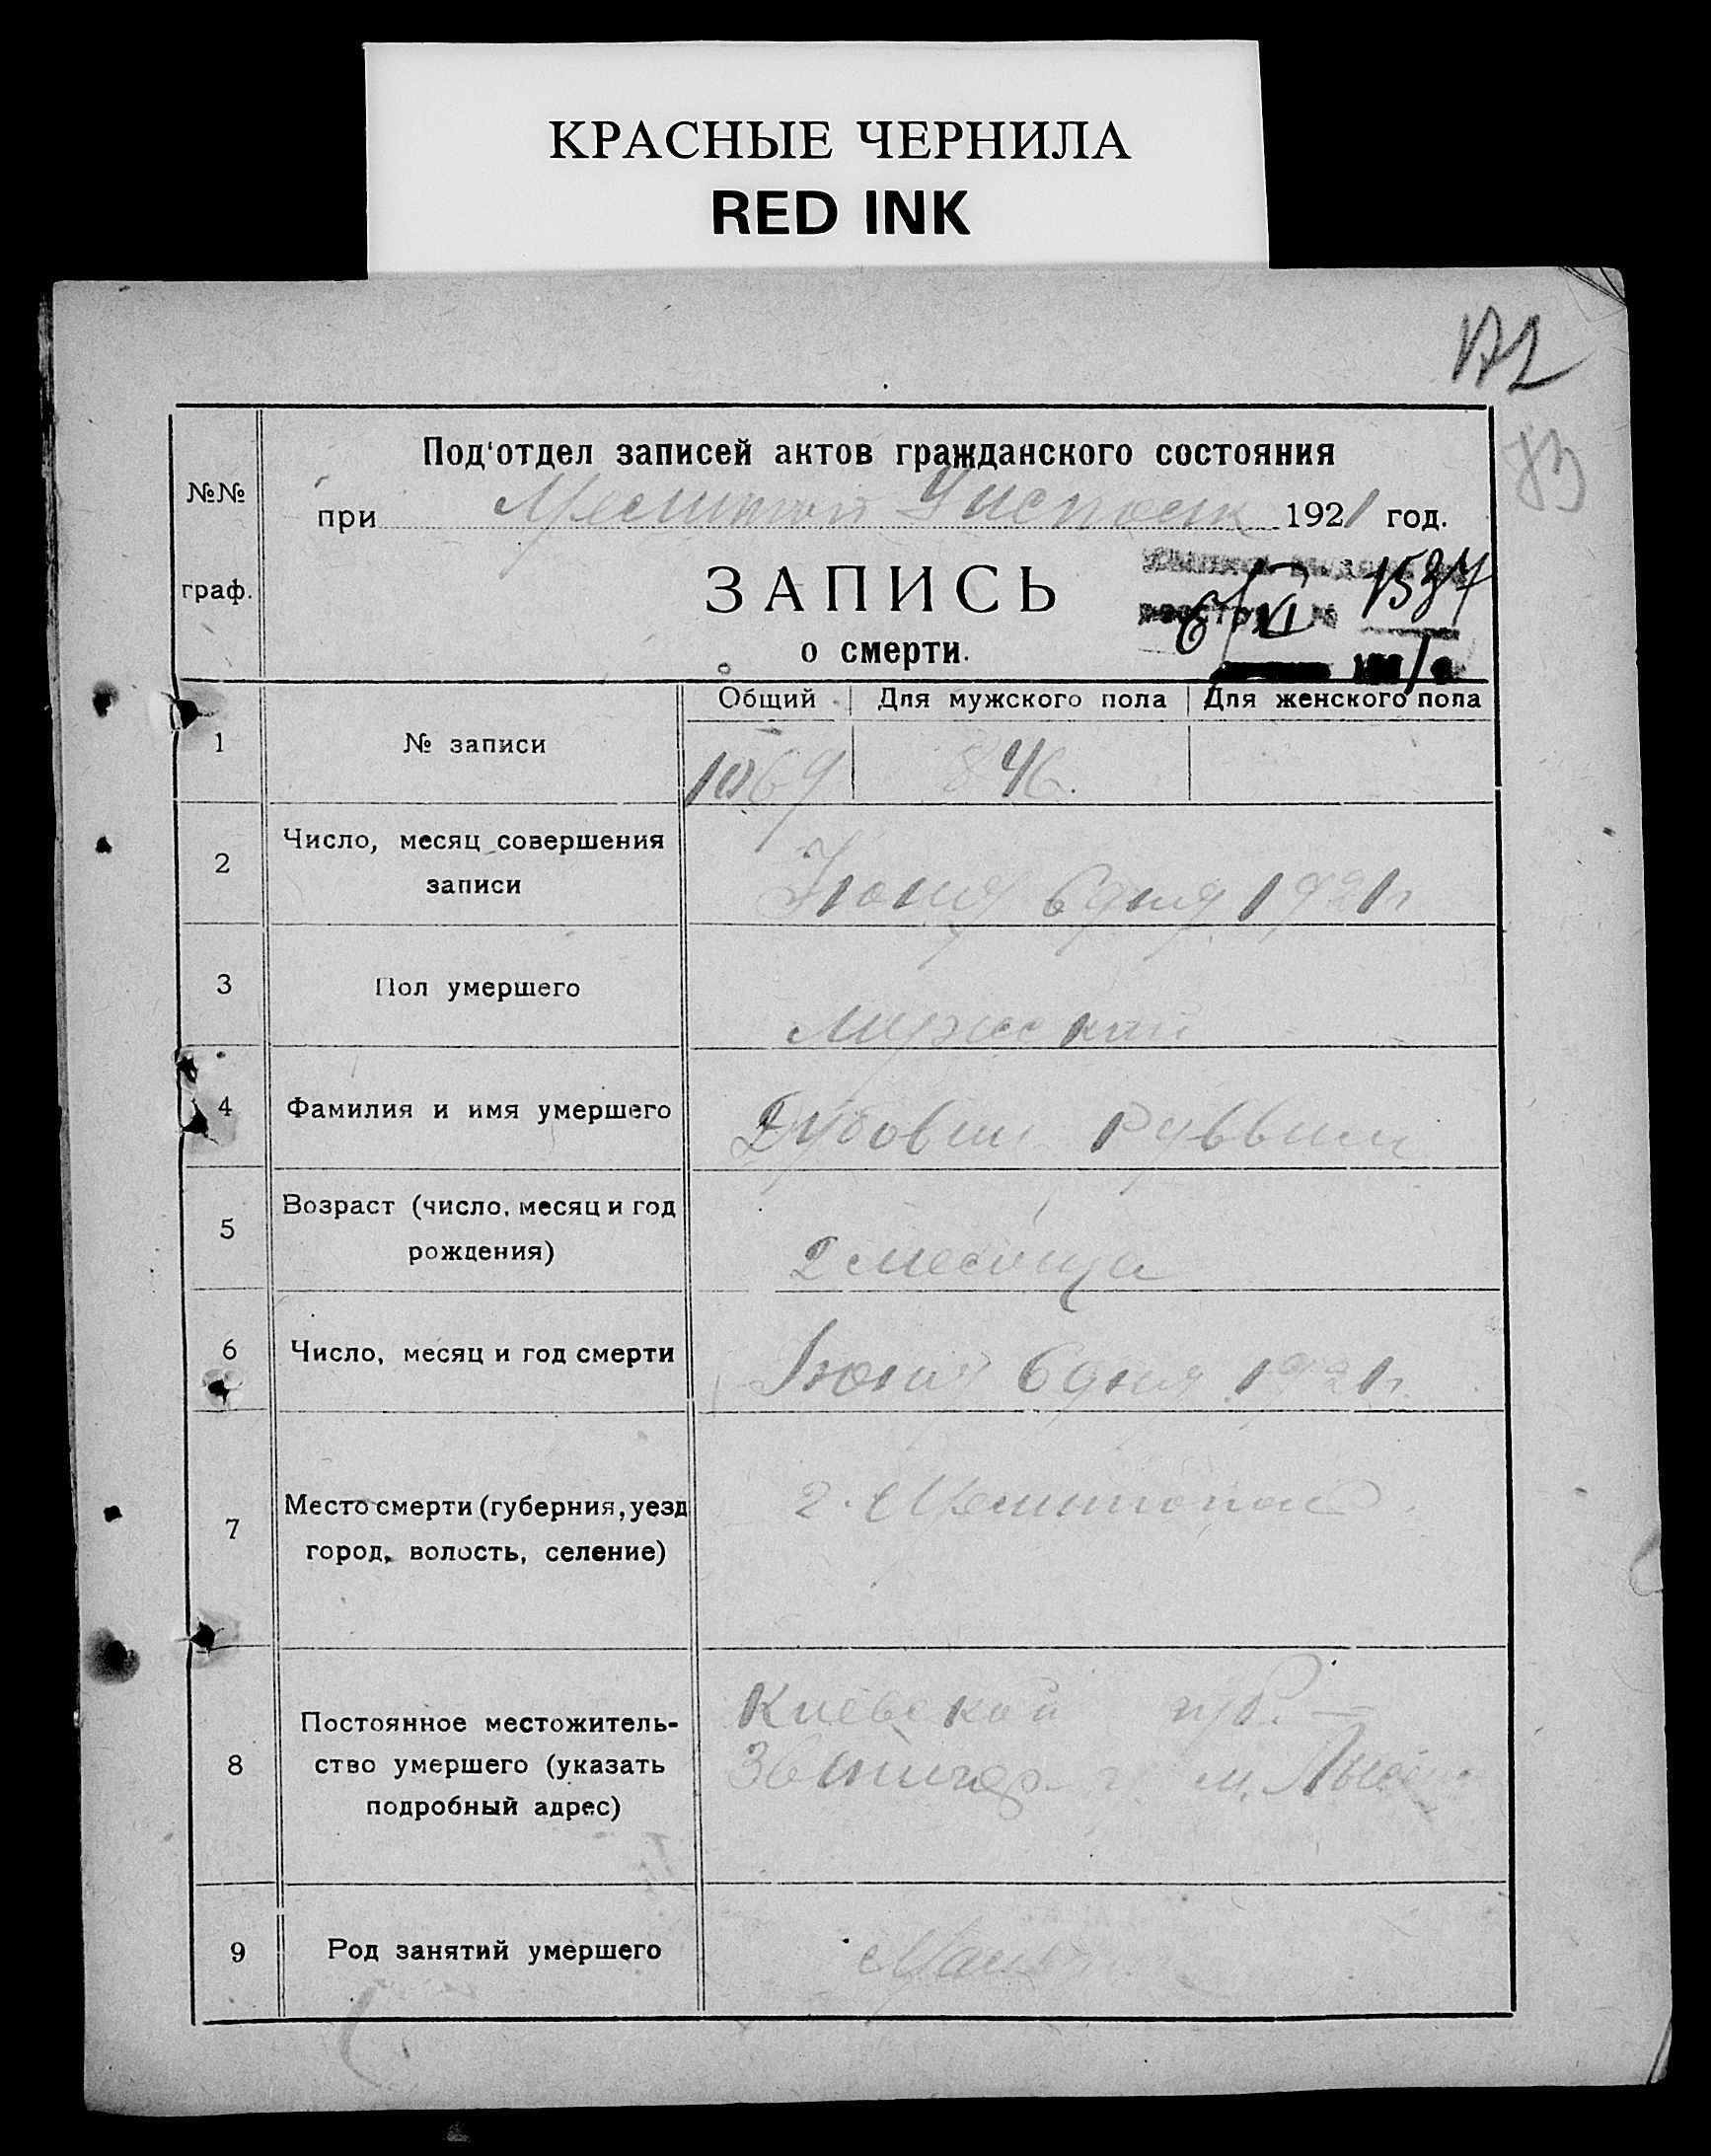 КРАСНЫЕ ЧЕРНИЛА
RED INK
172
83
Под'отдел записей актов гражданского состояния
№№
при 1921 год.
граф.
ЗАПИСЬ
о смерти.
6/VI 1537
Общий Для мужского пола Для женского пола
1 № записи 1069 846.
2 Число, месяц совершения
записи
Июня 6 дня 1921 г
3 Пол умершего
мужской
4 Фамилия и имя умершего
5 Возраст (число, месяц и год
рождения)
2 месяца
6 Число, месяц и год смерти
Июня 6 дня 1921 г.
7 Место смерти (губерния, уезд
город, волость, селение)
г. Мелитополь
8 Постоянное местожитель-
ство умершего (указать
подробный адрес)
Киевской губ.
м.
9 Род занятий умершего